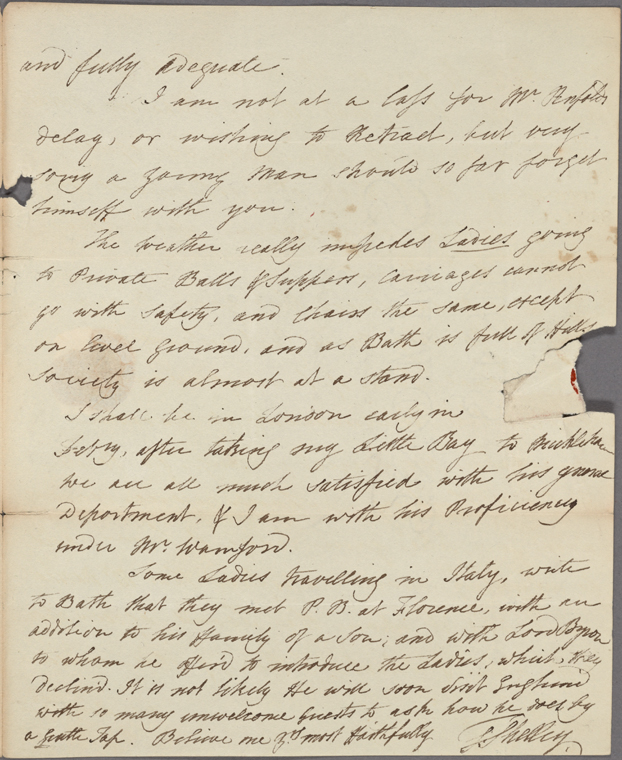 and fully adequate.
I am not at a loss for Mr. Penfolds
delay, or wishing to Retract, but very
sorry a young Man should so far forget
himself with you.
The Weather really impedes Ladies going
to Private Balls & Suppers, Carriages cannot
go with safety, and Chairs the same, except
on level ground, and as Bath is full of Hills
Society is almost at a stand.
I shall be in London early in
after taking my Little Boy to
we are all much satisfied with his
Department, & I am with his Proficiency
under Mr. Warnford.
Some Ladies travelling in Italy, write
to Bath that they met P. B. at Florence, with an
addition to his family of a Son; and with Lord Byron
to whom he offer'd to introduce the Ladies, which they
declin'd. It is not likely He will soon visit England
with so many unwelcome Guests to ask how he does by
a gentle Tap. Believe me yrs most faithfully
TShelley.